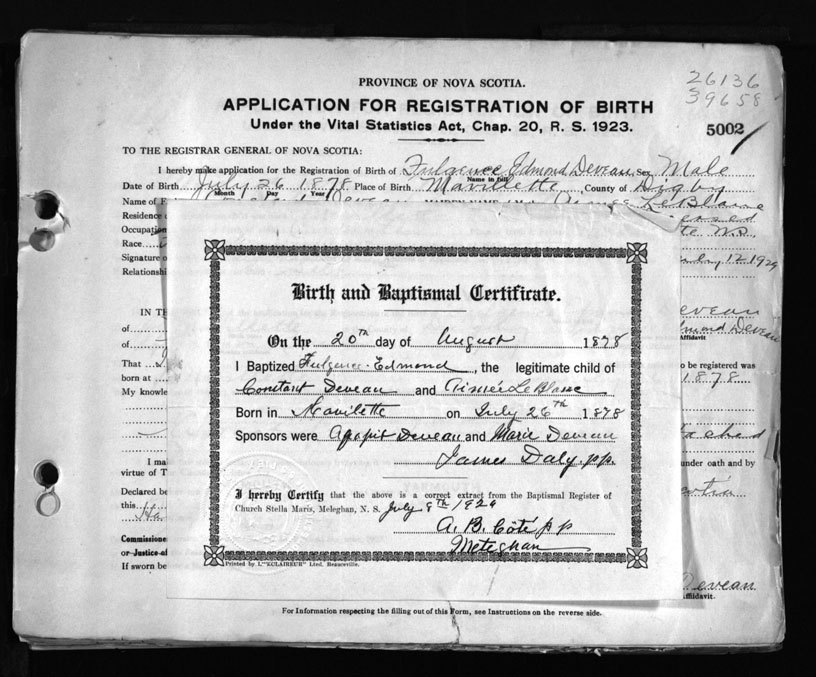 26136
39658
PROVINCE OF NOVA SCOTIA.
APPLICATION FOR REGISTRATION OF BIRTH
Under the Vital Statistics Act, Chap. 20, R. S. 1923.
5002
TO THE REGISTRAR GENERAL OF NOVA SCOTIA:
I hereby make application for the Registration of Birth of Fulgence Edmond Deveau Sex Male
Name in full
Date of Birth July 26 1878 Place of Birth Mavillette, County of Digby
Month Day Year
Name of Deveau LeBlanc
Residence
Occupation
Race
Signature of 12 1929
Relationship
Birth and Baptismal Certificate.
On the 20th day of August 1878
I Baptized Fulgence-Edmond, the legitimate child of
Constant Deveau and Aimée LeBlanc
Born in Mavilette on July 26th 1878
Sponsors were Agapit Deveau and Marie Deveau
James Daly, pp.
I hereby Certify that the above is a correct extract from the Baptismal Register of
Church Stella Maris, Meteghan, N. S. July 9th 1929
A. B. Côté p p
Meteghan
Printed by L'"ECLAIREUR" Ltd. Beauceville.
IN TE
of
of
That
born at
My knowle
I ma
virtue of T
Declared be
this
Commissione
or Justice of
If sworn be
Deveau
Edmond Deveau
Affidavit
to be registered was
1878
under oath and by
Deveau
Affidavit.
For Information respecting the filling out of this Form, see Instructions on the reverse side.